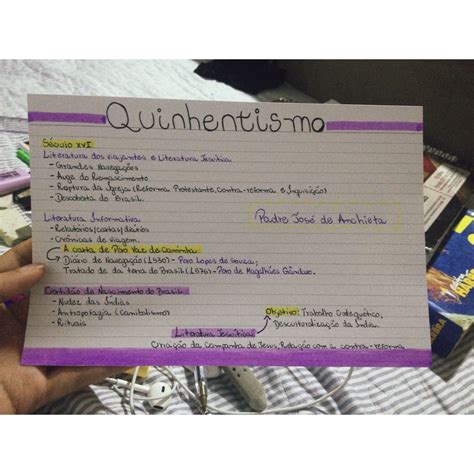 Quinhentismo
Século XVI
Literatura dos viajantes e Literatura Jesuítica
- Grandes Navegações
- Auge do Renascimento
- Ruptura da Igreja (Reforma Protestante, Contra-reforma e Inquisição)
- Descoberta do Brasil.
Literatura Informativa
- Relatórios/cartas/diários
- Crônicas de viagem.
Padre José de Anchieta
A carta de Pero Vaz de Caminha
Diário de Navegação (1530) - Pero Lopes de Souza;
Tratado de da terra do Brasil (1576) - Pero de Magalhães Gândavo.
Certidão de Nascimento do Brasil
- Nudez das Índias
- Antropofagia (Canibalismo)
- Rituais
Objetivo: Trabalho Catequético;
Desculturalização da Índia.
Literatura Jesuítica
Criação da Companhia de Jesus, Relação com a contra-reforma